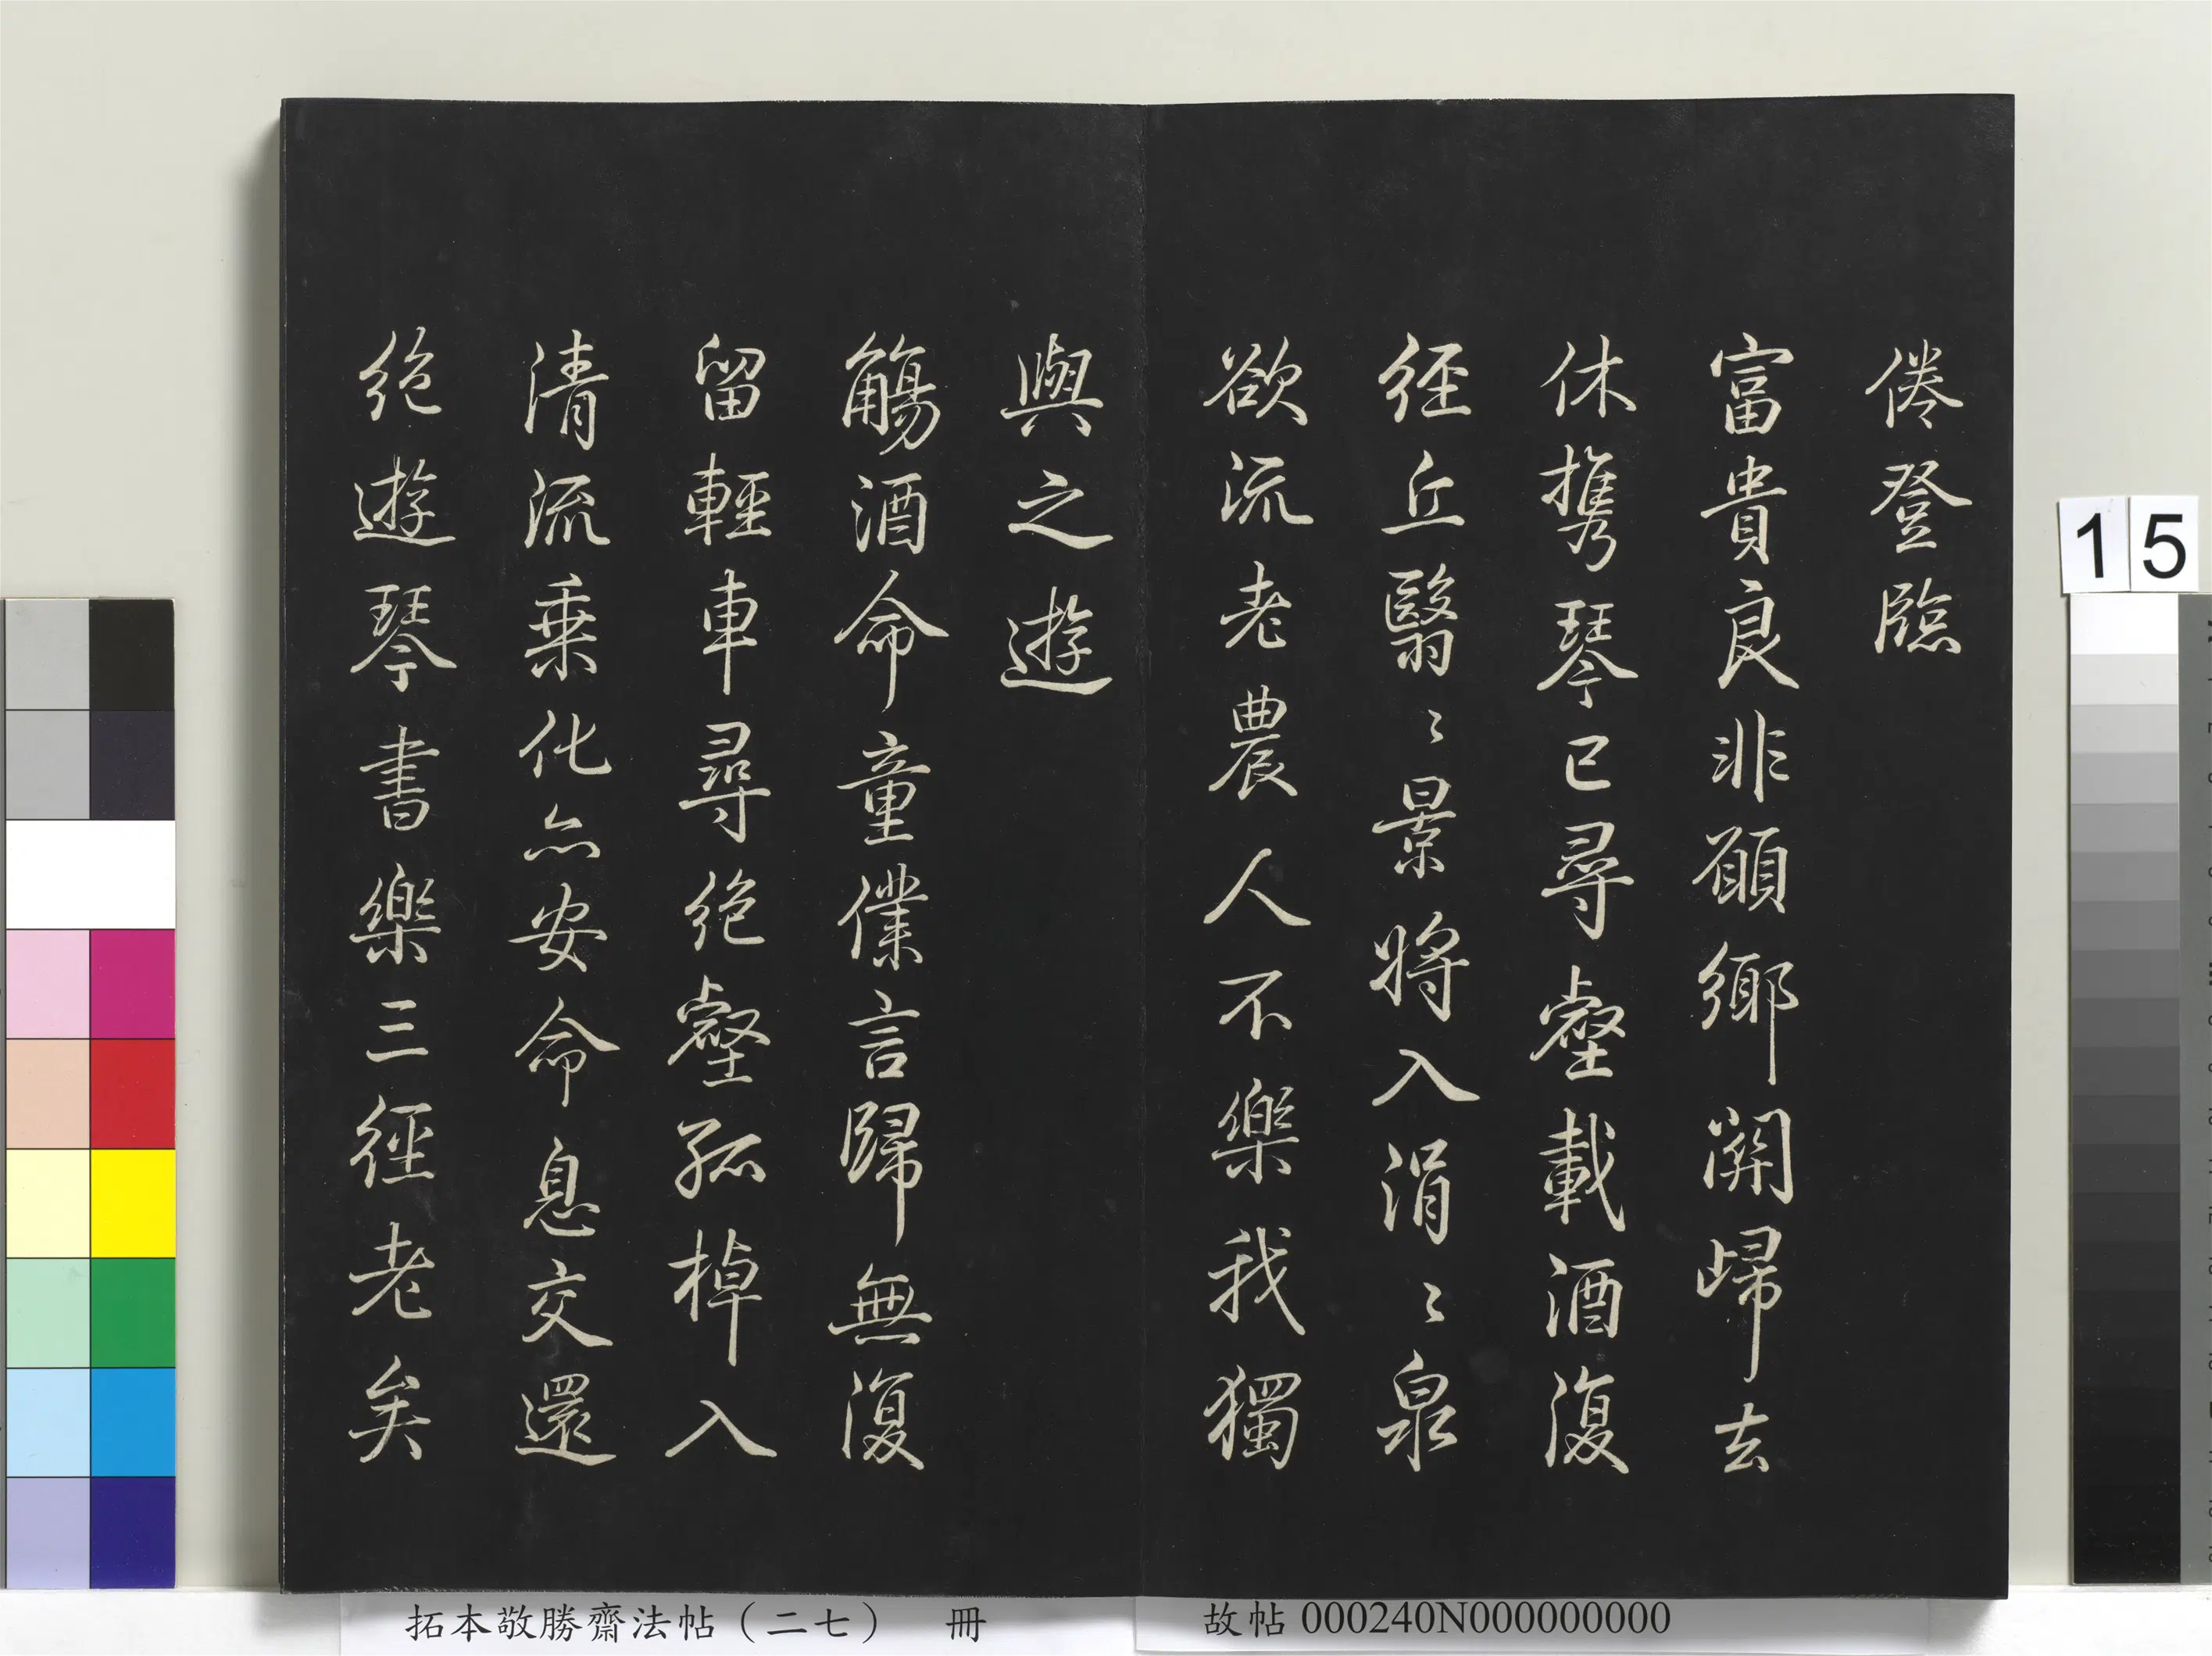 倦登臨
富貴良非願鄉關歸去
休携琴已尋壑載酒復
徑丘翳〻景將入涓〻泉
欲流老農人不樂我獨
與之遊
觴酒命童僕言歸無復
留輕車尋絕壑孤棹入
清流乗化亦安命息交還
絕遊琴書樂三徑老矣
15
拓本敬勝齋法帖（二七） 冊
故帖 000240N000000000